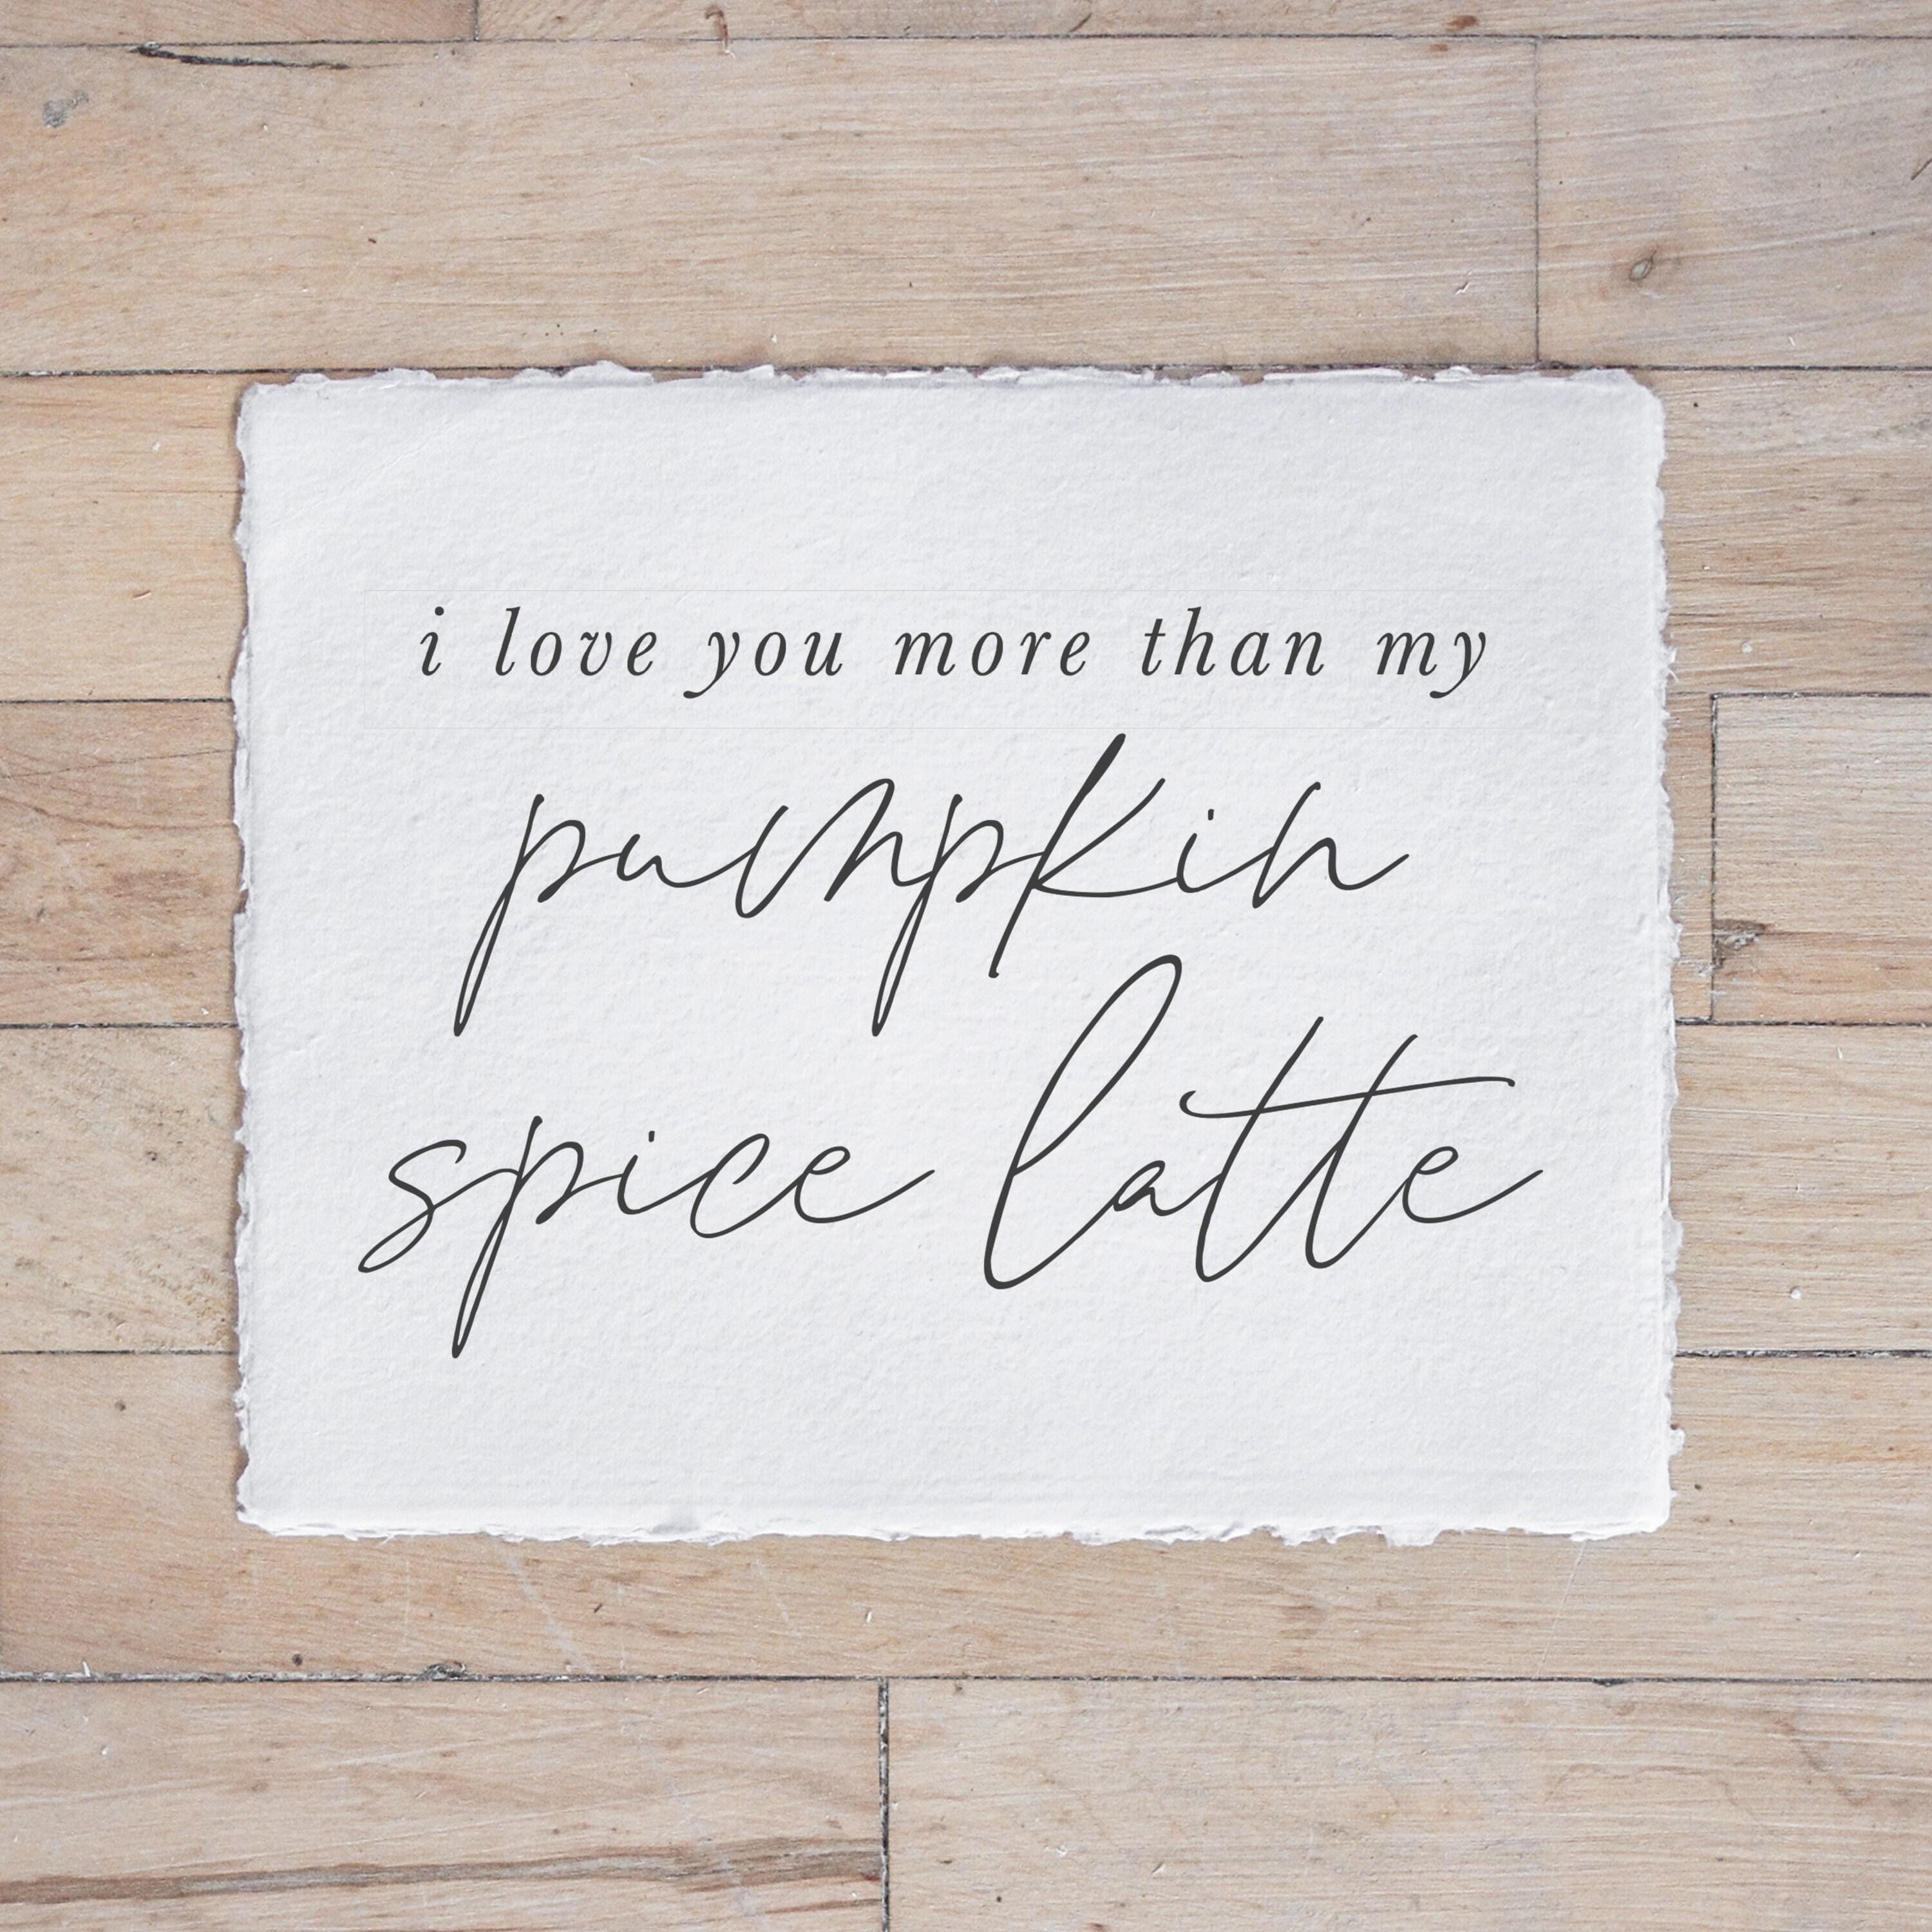 i love you more than my
pumpkin
spice latte